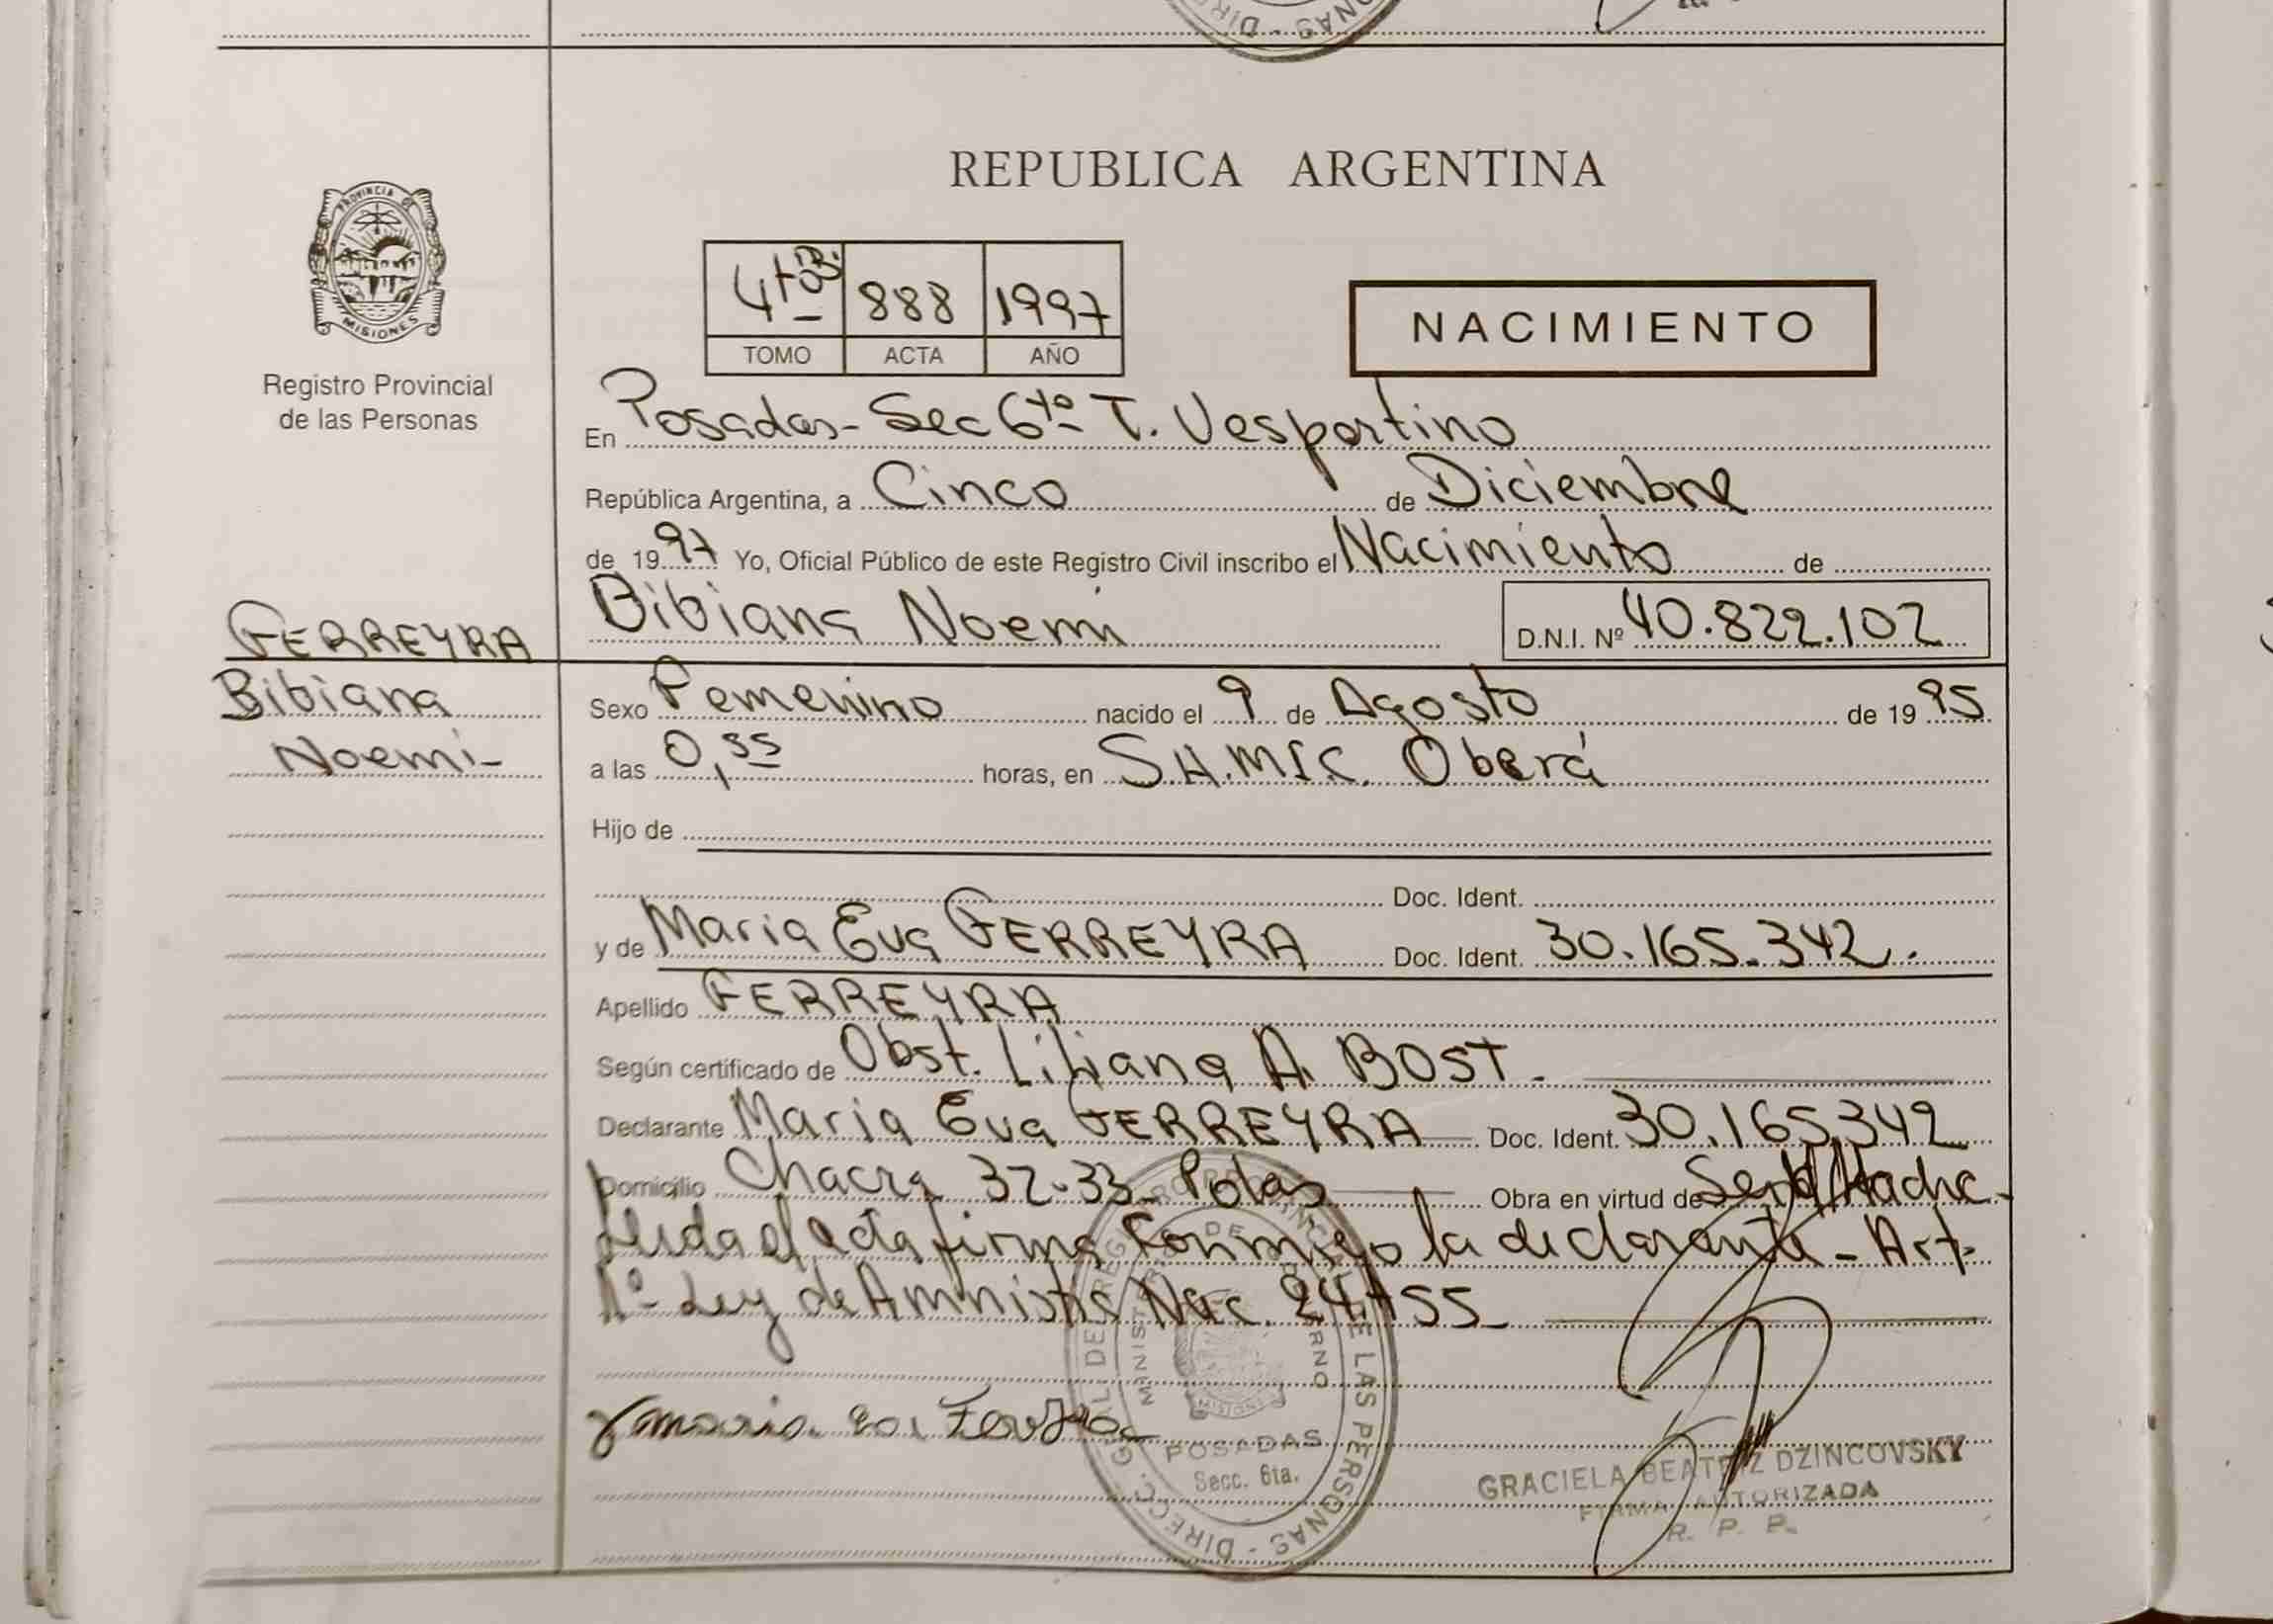 REPUBLICA ARGENTINA
PROVINCIA DE
MISIONES
Registro Provincial
de las Personas
4to B. 888 1997
TOMO ACTA AÑO
NACIMIENTO
En Posadas - Sec 6ta T. Vespertino
República Argentina, a Cinco de Diciembre
de 1997 Yo, Oficial Público de este Registro Civil inscribo el Nacimiento de
Bibiana Noemi D.N.I. Nº 40.822.102
FERREYRA
Bibiana
Noemi-
Sexo Femenino nacido el 9 de Agosto de 1995
a las 0,35 horas, en S.H.MIC. Oberá
Hijo de
Doc. Ident.
y de Maria Eva FERREYRA Doc. Ident. 30.165.342.
Apellido FERREYRA
Según certificado de Obst. Liliana A. BOST.
Declarante Maria Eva FERREYRA Doc. Ident. 30.165.342
Domicilio Chacra 32-33- Pdas Obra en virtud de Ser Madre-
Leida el acta firma conmigo la declarante - Art-
1º- Ley de Amnistia Nac. 24755
Maria Eva Ferreyra
DIREC. GRAL. DEL REGISTRO PROVINCIAL DE LAS PERSONAS
MINISTERIO DE GOBIERNO
MISIONES
POSADAS
Secc. 6ta.
GRACIELA BEATRIZ DZINCOVSKY
FIRMA AUTORIZADA
R. P. P.